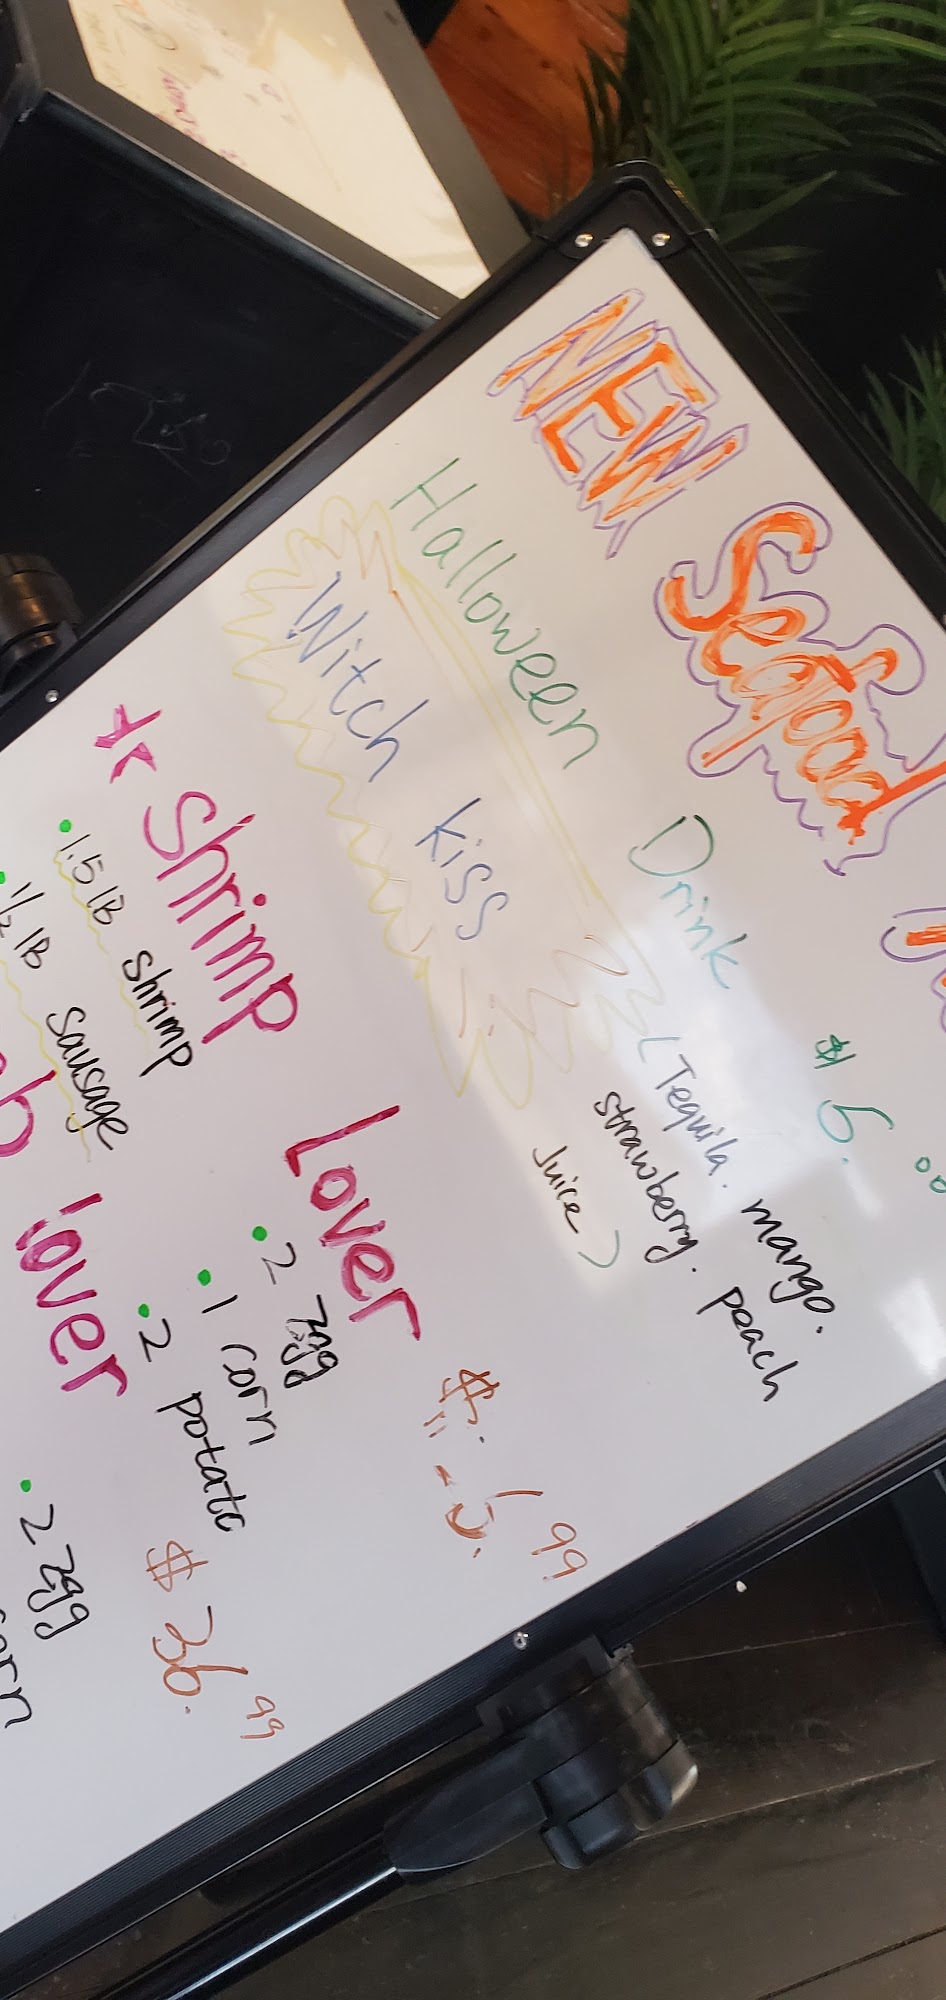 NEW Seafood
Halloween Drink $6.00
Witch Kiss (Tequila. mango.
strawberry. peach
Juice)
* Shrimp Lover
• 1.5 lB shrimp • 2 Egg
• 1/2 lB sausage • 1 corn
• 2 potato
lover $36.99
• 2 Egg